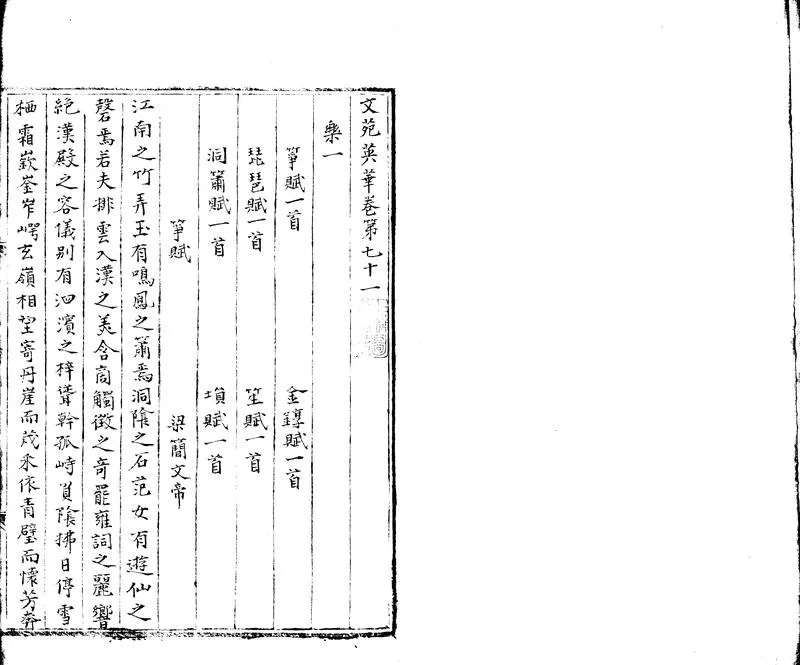 文苑英華卷第七十一
樂一
箏賦一首 金錞賦一首
琵琶賦一首 笙賦一首
洞簫賦一首 塤賦一首
箏賦 梁簡文帝
江南之竹弄玉有鳴鳳之簫焉洞隂之石范女有遊仙之
磬焉若夫排雲入漢之美含商觸徵之奇罷雍詞之麗響
絶漢殿之容儀别有泗濱之梓聳幹孤峙負隂拂日停雪
栖霜嶔崟岝崿玄嶺相望寄丹崖而茂采依青壁而懷芳奔